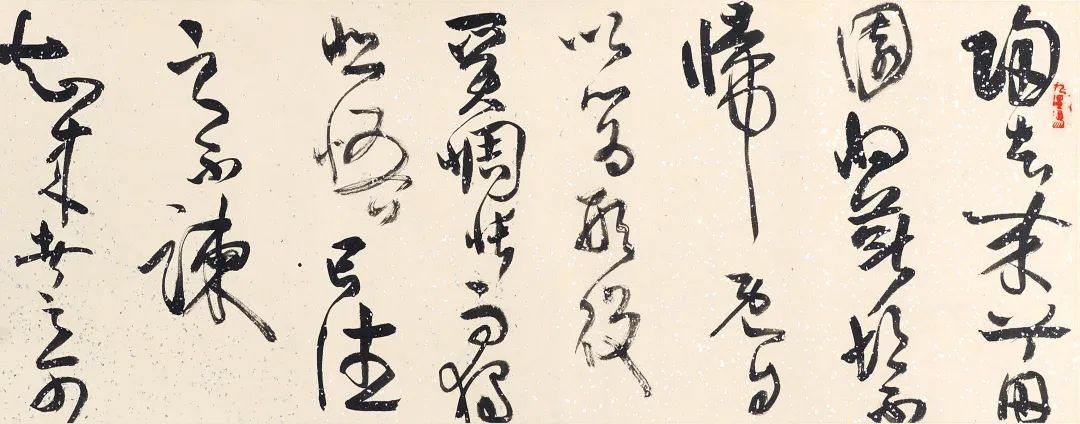 歸去来兮田
園将蕪胡不
歸既自
以心為形役
奚惆悵而獨
悲悟已往
之不諫
知来者之可